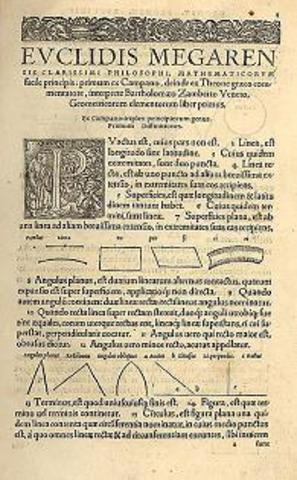 EVCLIDIS MEGAREN
SIS CLARISSIMI PHILOSOPHI, MATHEMATICORVM
facile principis: primum ex Campano, deinde ex Theone græco com-
mentatore, interprete Bartholomæo Zamberto Veneto,
Geometricorum elementorum liber primus.
Ex Campano triplex principiorum genus.
Primum Diffinitiones.
PVnctus est, cuius pars non est. 2 Linea, est
longitudo sine latitudine. 3 Cuius quidem
extremitates, sunt duo puncta. 4 Linea re-
cta, est ab uno puncto ad alium breuissima ex-
tensio, in extremitates suas eos recipiens.
5 Superficies, est quæ longitudinem & latitu
dinem tantum habet. 6 Cuius quidem ter
mini, sunt lineæ. 7 Superficies plana, est ab
una linea ad aliam breuissima extensio, in extremitates suas eas recipiens.
8 Angulus planus, est duarum linearum alternus contactus, quarum
expansio est super superficiem, applicatioque non directa. 9 Quando
autem angulum continent duæ lineæ rectæ rectilineus angulus nominatur.
10 Quando recta linea super rectam steterit, duoque anguli utrobique fue
rint æquales, eorum uterque rectus erit, lineaque lineæ superstans, ei cui
superstat, perpendicularis uocatur. 11 Angulus uero qui recto maior est,
obtusus dicitur. 12 Angulus uero minor recto, acutus appellatur.
13 Terminus, est quod uniuscuiusque finis est. 14 Figura, est quæ ter
mino uel terminis continetur. 15 Circulus, est figura plana una qui
dem linea contenta quæ circumferentia nominatur, in cuius medio punctus
est, a quo omnes lineæ rectæ ad circumferentiam exeuntes, sibi inuicem
a sunt